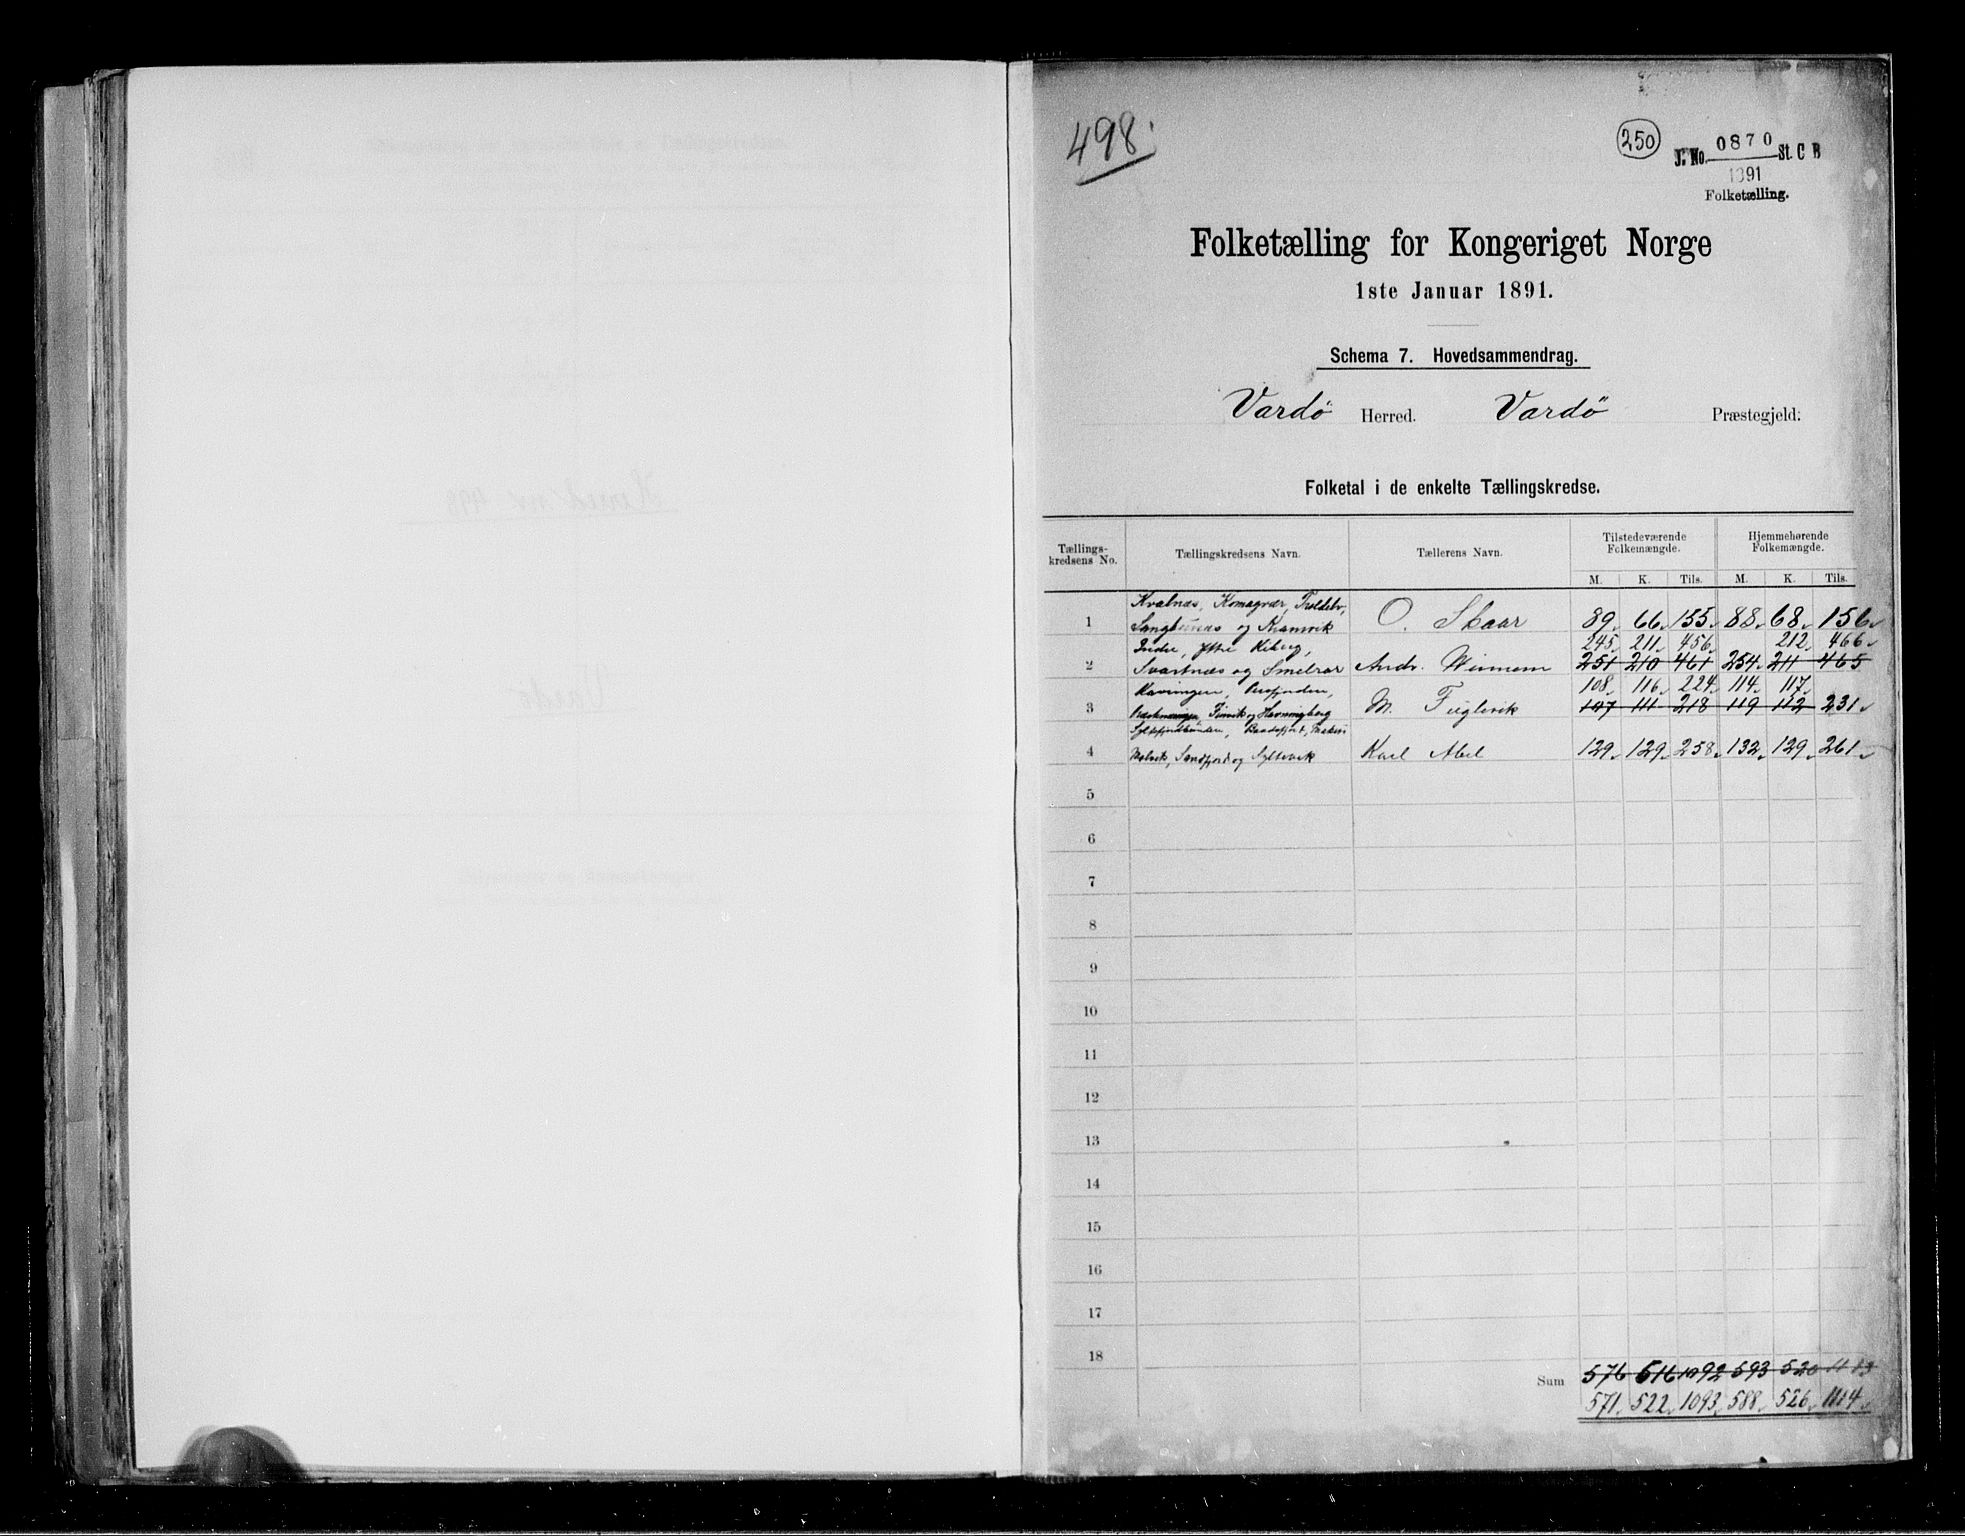 498.
250
J. No. 0870 St. C B
1891
Folketælling.
Folketælling for Kongeriget Norge
1ste Januar 1891.
Schema 7. Hovedsammendrag.
Vardö Herred. Vardö Præstegjeld.
Folketal i de enkelte Tællingskredse.
Tællings-kredsens No. Tællingskredsens Navn. Tællerens Navn. Tilstedeværende Folkemængde. Hjemmehørende Folkemængde.
M. K. Tils. M. K. Tils.
Kvalnæs, Komagvær,
1 Langbunæs og Kramvik O. Skaar 89 66 155 88 68 156
Indre, Ytre Kiberg, 245 211 456 212 466
2 Svartnæs og Smelror Andr. Winnem 251 210 461 254 211 465
108 116 224 114 117
3 Finvik og Havningberg M. Fuglevik 107 111 218 119 112 231
Syltefjordbunden, Baadsfjord, Makur
4 Molvik, Sandfjord og Syltevik Karl Abel 129 129 258 132 129 261
5
6
7
8
9
10
11
12
13
14
15
16
17
18
Sum 576 516 1092 593 520 1113
571 522 1093 588 526 1114
Herred nr 498
Vardö